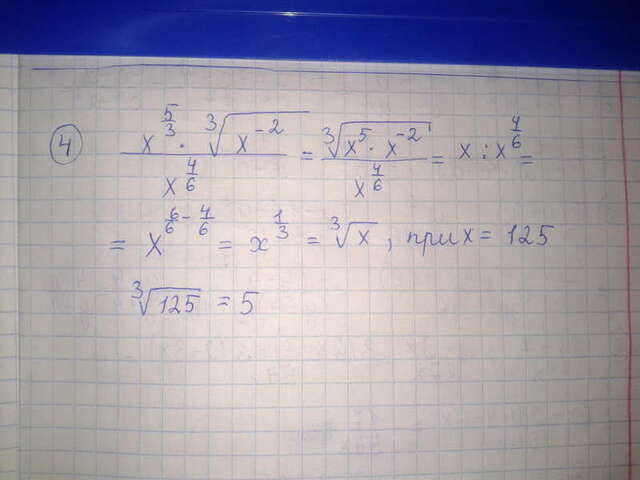 ④ x^(5/3) · ∛(x^(-2)) / x^(4/6) = ∛(x^5 · x^(-2)) / x^(4/6) = x : x^(4/6) =
= x^(6/6 - 4/6) = x^(1/3) = ∛x, при x = 125
∛125 = 5